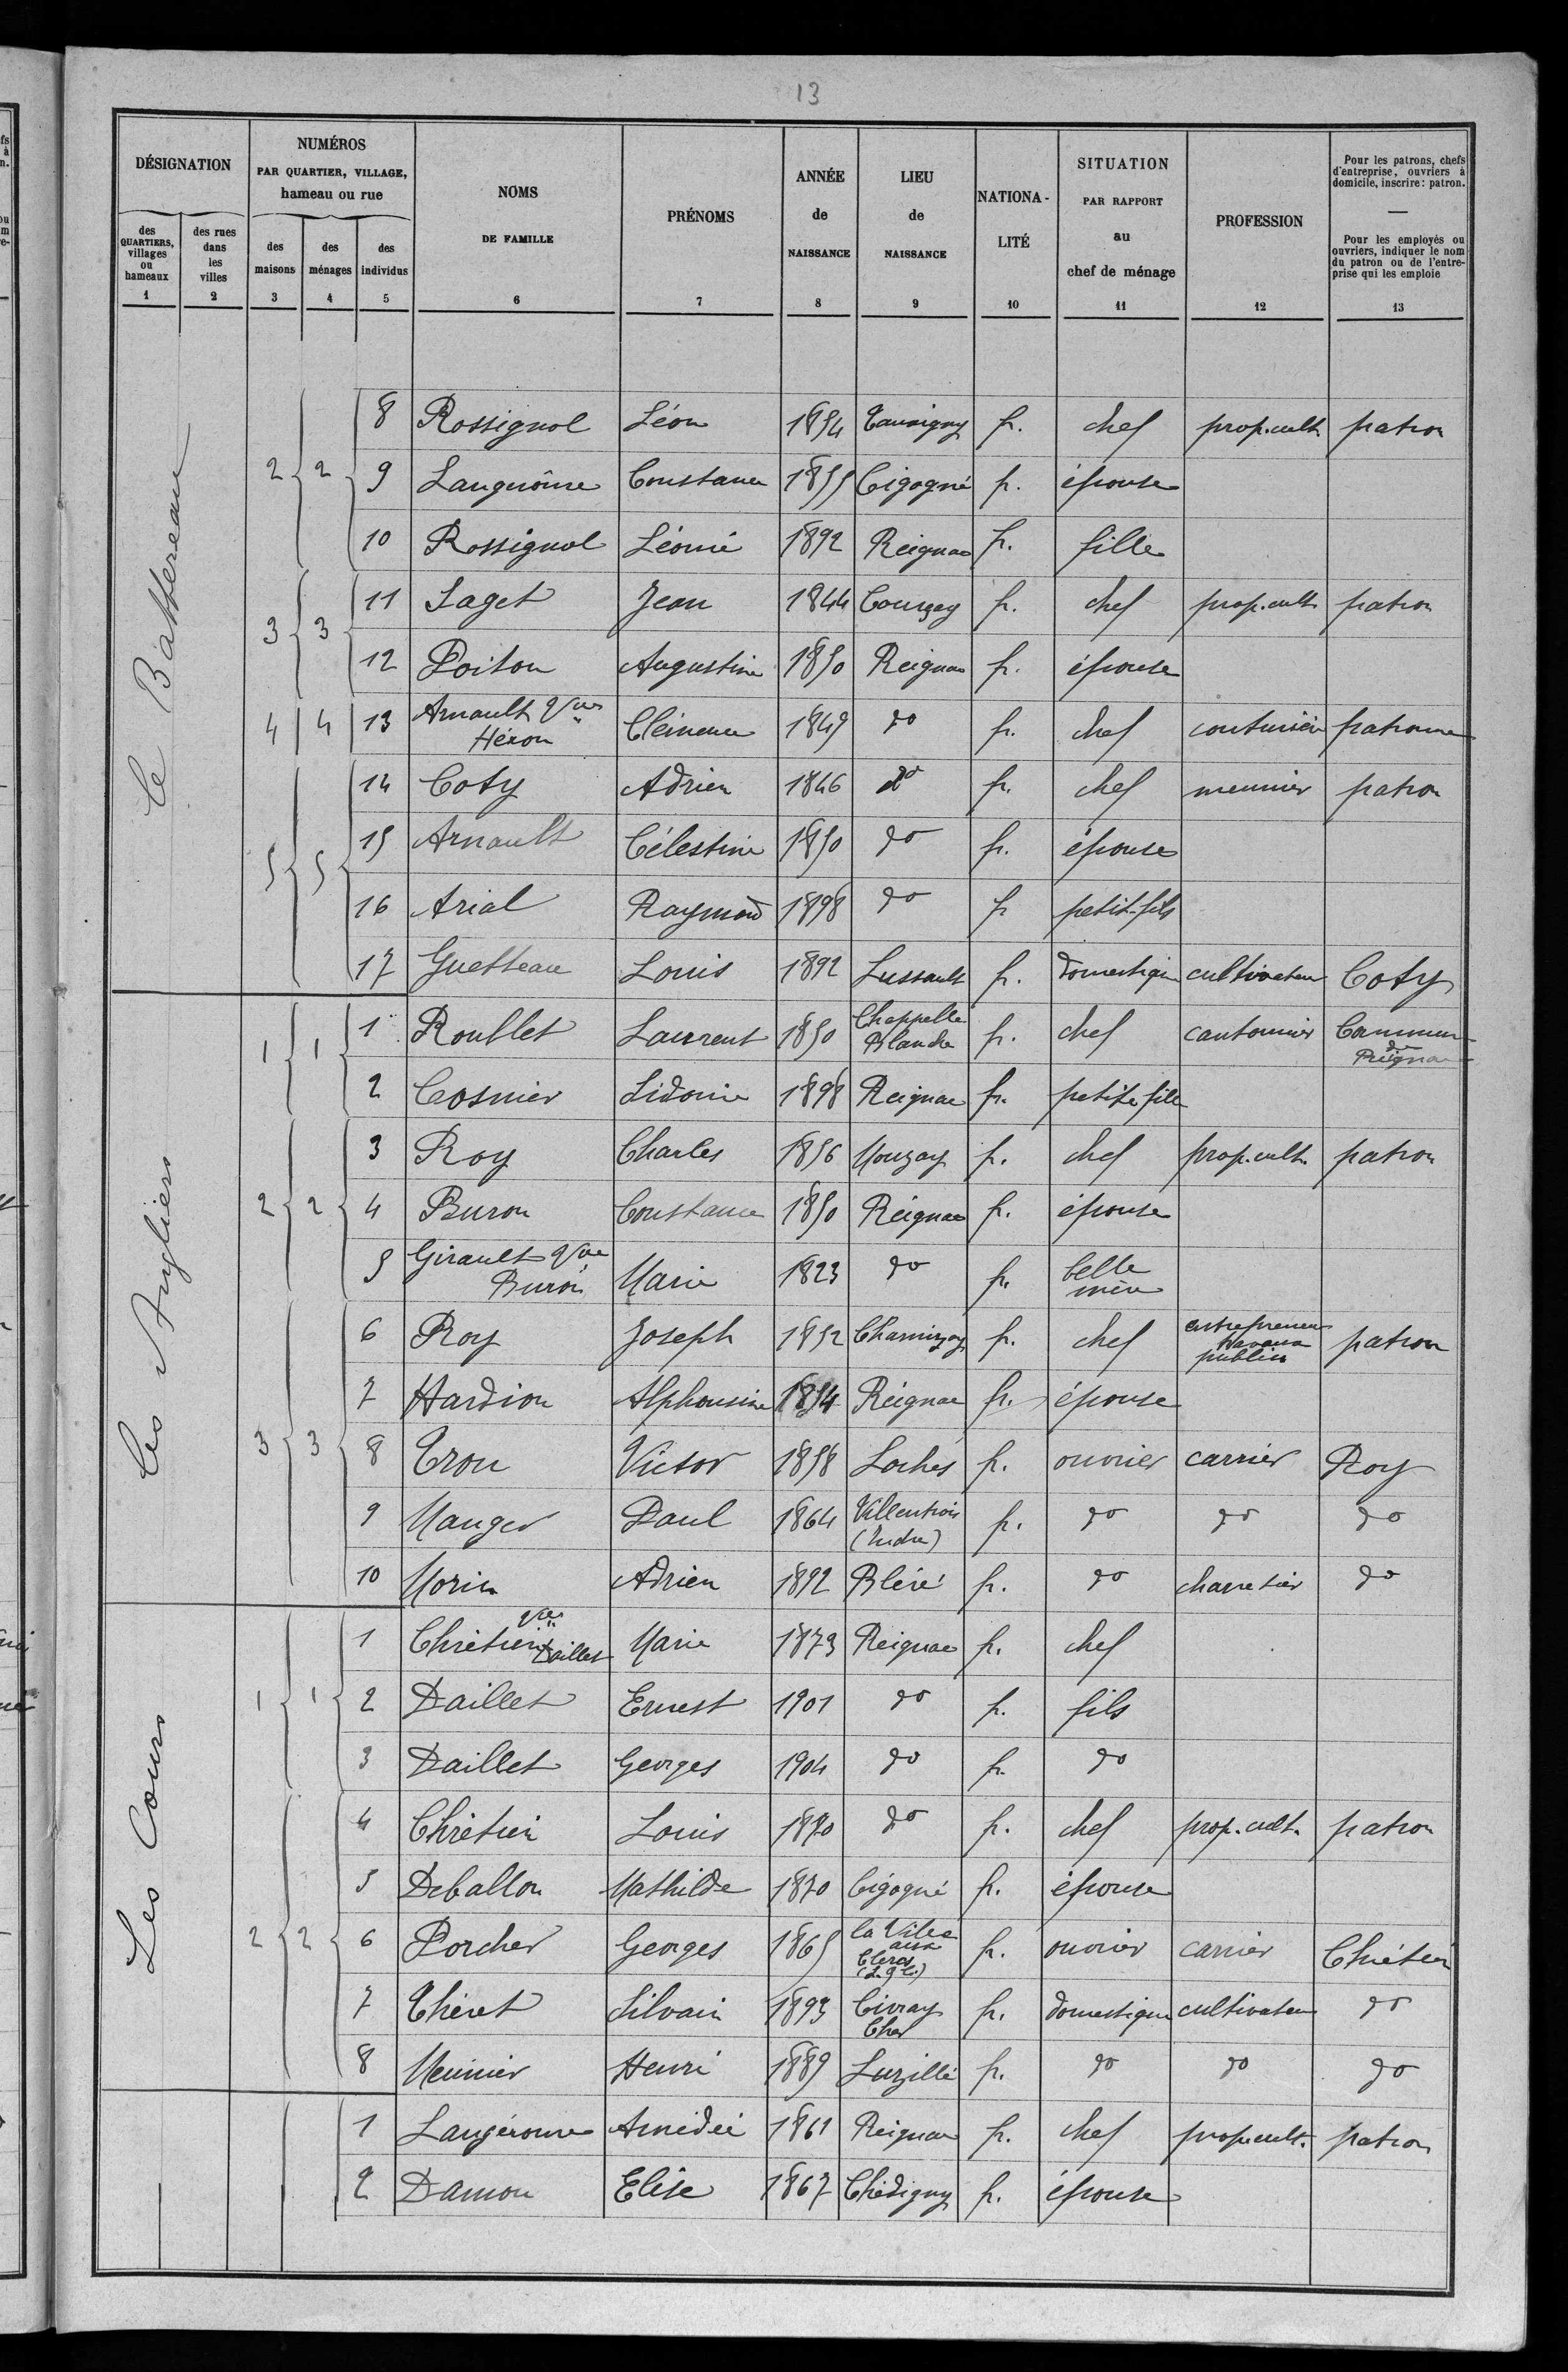 13
DÉSIGNATION
NUMÉROS
PAR QUARTIER, VILLAGE,
hameau ou rue
NOMS
DE FAMILLE
PRÉNOMS
ANNÉE
de
NAISSANCE
LIEU
de
NAISSANCE
NATIONA-
LITÉ
SITUATION
PAR RAPPORT
au
chef de ménage
PROFESSION
Pour les patrons, chefs
d'entreprise, ouvriers à
domicile, inscrire: patron.
—
Pour les employés ou
ouvriers, indiquer le nom
du patron ou de l'entre-
prise qui les emploie
des
QUARTIERS,
villages
ou
hameaux
des rues
dans
les
villes
des
maisons
des
ménages
des
individus
1 2 3 4 5 6 7 8 9 10 11 12 13
Le Battereau
2 2 8 Rossignol Léon 1854 Tauxigny fr. chef prop. cult. patron
9 Constance 1855 Cigogné fr. épouse
10 Rossignol Léonie 1892 Reignac fr. fille
3 3 11 Saget Jean 1844 Courçay fr. chef prop. cult. patron
12 Poitou Augustine 1850 Reignac fr. épouse
4 4 13 Arnault Vve Héron Clémence 1849 do fr. chef couturière patronne
5 5 14 Coty Adrien 1846 do fr. chef meunier patron
15 Arnault Célestine 1850 do fr. épouse
16 Arial Raymond 1898 do fr petit-fils
17 Guetteau Louis 1892 Lussault fr. domestique cultivateur Coty
Les Angliers
1 1 1 Roullet Laurent 1850 Chappelle Blanche fr. chef cantonnier Commune de Reignac
2 Cosnier Sidonie 1898 Reignac fr. petite fille
2 2 3 Roy Charles 1856 Mouzay fr. chef prop. cult. patron
4 Buron Constance 1850 Reignac fr. épouse
5 Girault Vve Buron Marie 1823 do fr. belle mère
3 3 6 Roy Joseph 1852 fr. chef entrepreneur travaux publics patron
7 Hardion Alphonsine 1854 Reignac fr. épouse
8 Trou Victor 1858 Loches fr. ouvrier carrier Roy
9 Mauger Paul 1864 Villentrois (Indre) fr. do do do
10 Morin Adrien 1892 Bléré fr. do charretier do
Les Cours
1 1 1 Chrétien Vve Daillet Marie 1873 Reignac fr. chef
2 Daillet Ernest 1901 do fr. fils
3 Daillet Georges 1904 do fr. do
2 2 4 Chrétien Louis 1870 do fr. chef prop. cult. patron
5 Deballon Mathilde 1870 Cigogné fr. épouse
6 Porcher Georges 1865 la Ville aux Clercs fr. ouvrier carrier Chrétien
7 Théret Silvain 1893 Civray Cher fr. domestique cultivateur do
8 Meunier Henri 1889 Luzillé fr. do do do
1 Amédée 1861 Reignac fr. chef prop. cult. patron
2 Damon Elise 1867 Chédigny fr. épouse